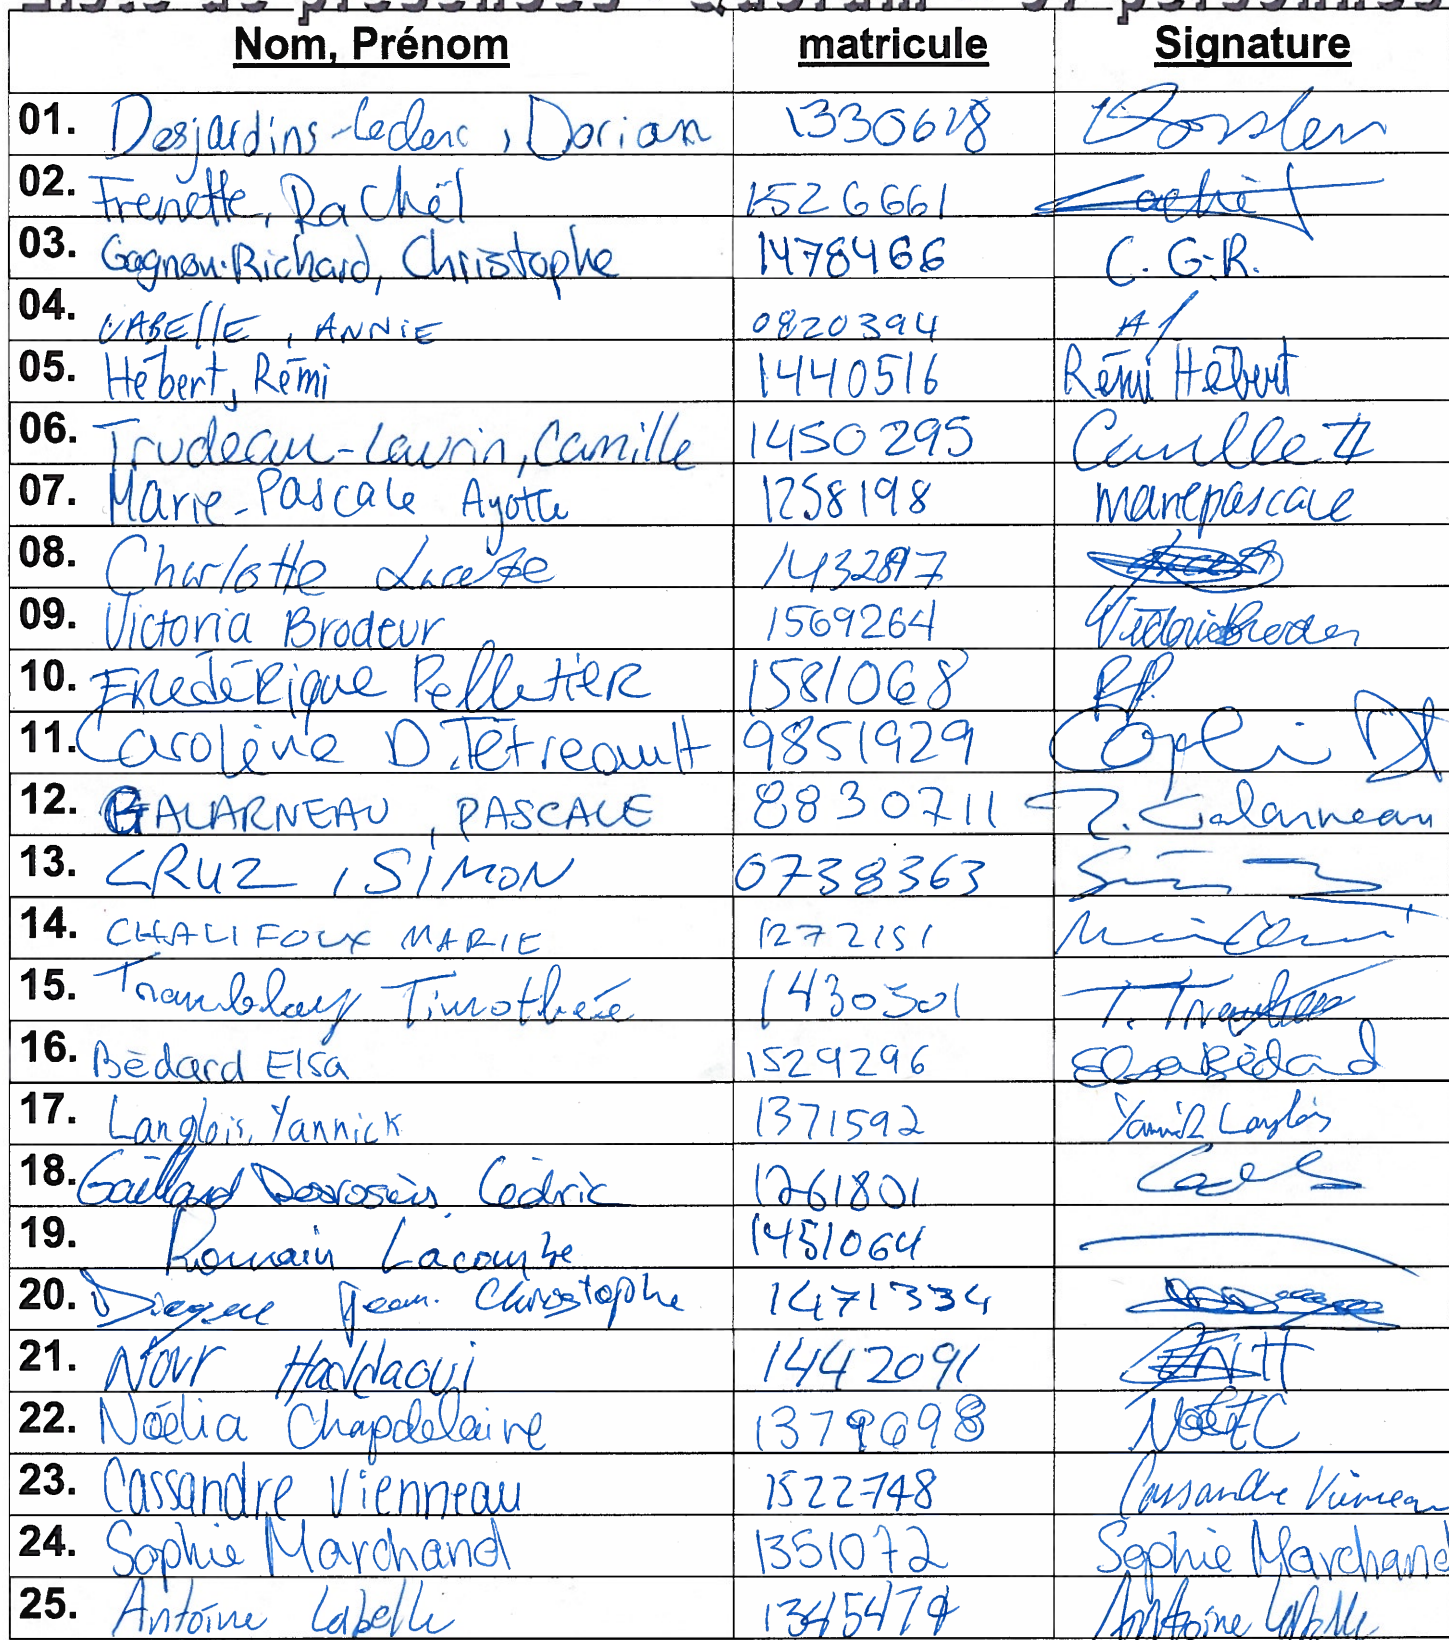 Liste de présences Quorum 37 personnes
Nom, Prénom matricule Signature
01. Desjardins-Leclerc, Dorian 1330628
02. Frenette, Rachël 1526661
03. Gagnon-Richard, Christophe 1478466 C. G-R.
04. LABEllE, ANNiE 0820394
05. Hébert, Rémi 1440516 Rémi Hébert
06. Trudeau-Laurin, Camille 1450295 Camille
07. Marie-Pascale Ayotte 1258198 mariepascale
08. Charlotte 1432897
09. Victoria Brodeur 1569264 Victoria Brodeur
10. Frédérique Pelletier 1581068
11. Carolène D.Tétreault 9851929
12. GALARNEAU, PASCALE 8830711 P. Galarneau
13. CRUZ, SIMON 0738363
14. CHALIFOUX MARIE 1272151
15. Tramblay Timothée 1430501
16. Bédard Elsa 1529296 Elsa Bédard
17. Langlois, Yannick 1371592 Yannick Langlois
18. Gaillard Desrosiers Cédric 1261801
19. Romain Lacombe 1451064
20. Jean-Christophe 1471334
21. Nour Haddaoui 1442091 NH
22. Noélia Chapdelaine 1379698
23. Cassandre Vienneau 1522748 Cassandre Vienneau
24. Sophie Marchand 1351072 Sophie Marchand
25. Antoine Labelle Antoine Labelle